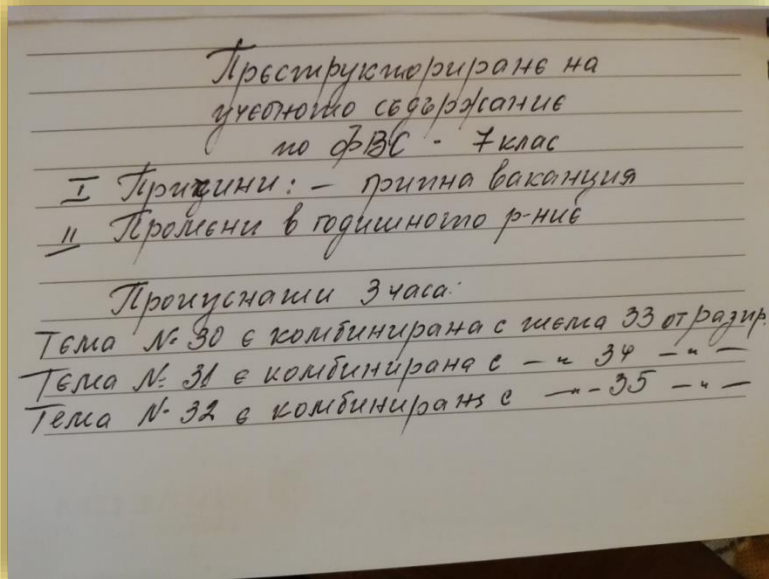 Преструкториране на
учебното съдържание
по ФВС - 7 клас
I Причини: - грипна ваканция
II Промени в годишното р-ние
Пропуснати 3 часа:
Тема № 30 е комбинирана с тема 33 от разпр.
Тема № 31 е комбинирана с —"— 34 —"—
Тема № 32 е комбинирана с —"— 35 —"—